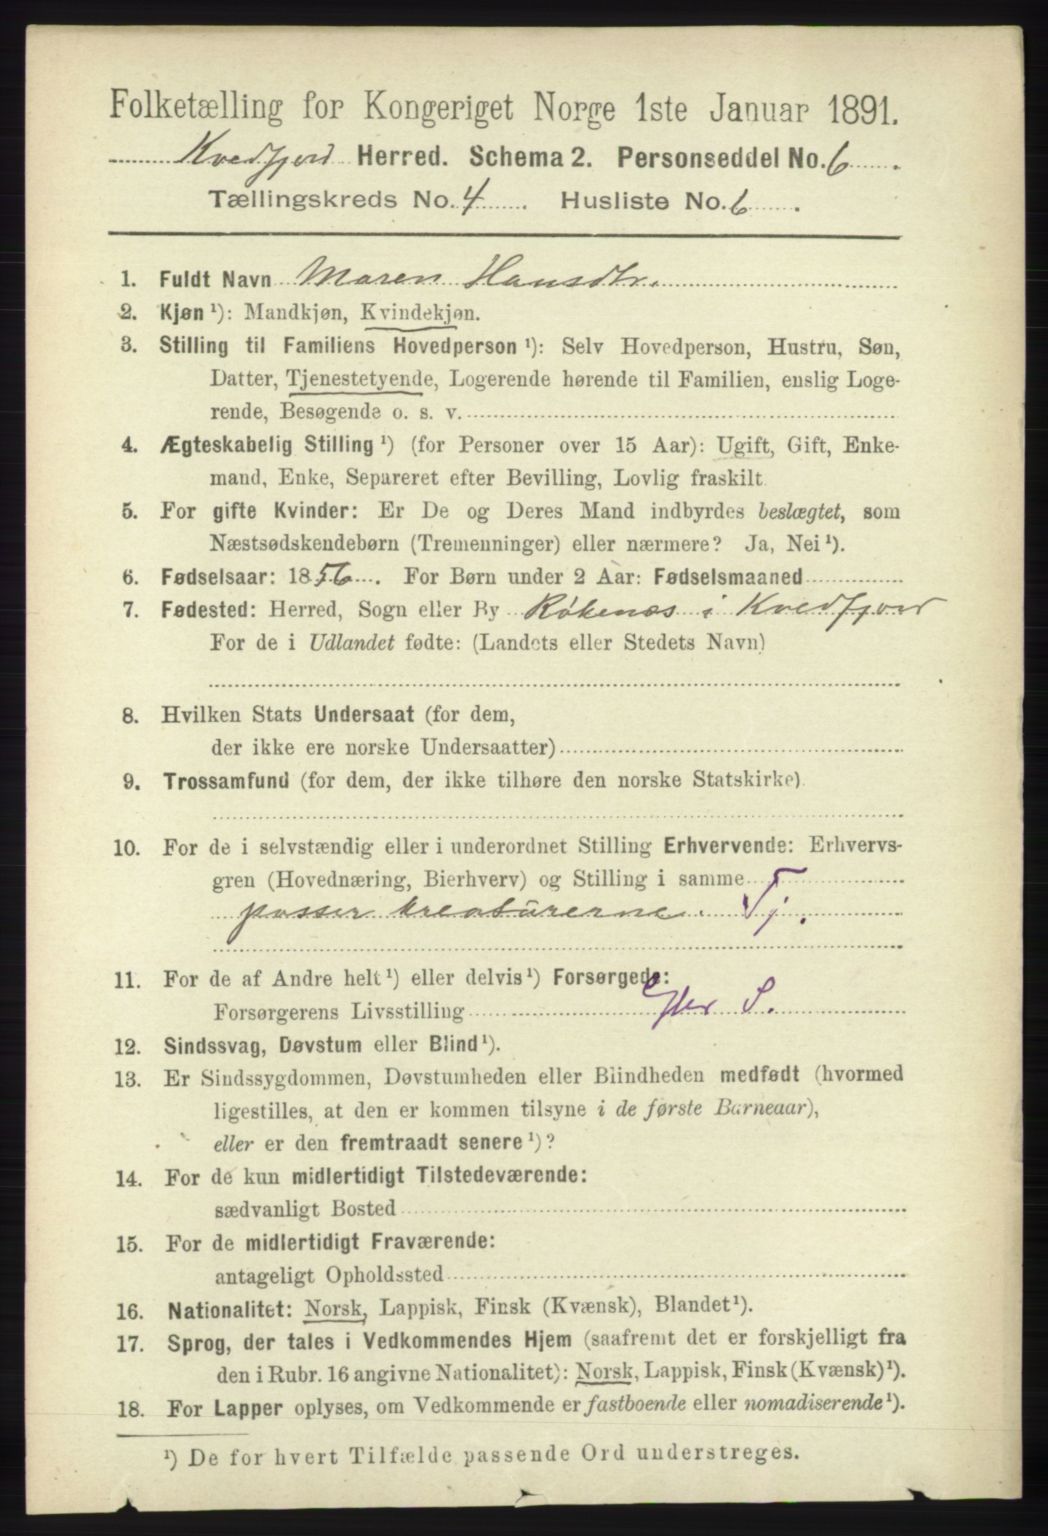 Folketælling for Kongeriget Norge 1ste Januar 1891.
Kvedfjord Herred. Schema 2. Personseddel No. 6.
Tællingskreds No. 4. Husliste No. 6.
1. Fuldt Navn Maren Hansdtr.
2. Kjøn ¹): Mandkjøn, Kvindekjøn.
3. Stilling til Familiens Hovedperson ¹): Selv Hovedperson, Hustru, Søn,
Datter, Tjenestetyende, Logerende hørende til Familien, enslig Loge-
rende, Besøgende o. s. v.
4. Ægteskabelig Stilling ¹) (for Personer over 15 Aar): Ugift, Gift, Enke-
mand, Enke, Separeret efter Bevilling, Lovlig fraskilt
5. For gifte Kvinder: Er De og Deres Mand indbyrdes beslægtet, som
Næstsødskendebørn (Tremenninger) eller nærmere? Ja, Nei ¹).
6. Fødselsaar: 1856. For Børn under 2 Aar: Fødselsmaaned
7. Fødested: Herred, Sogn eller By Røkenæs i Kvedfjord
For de i Udlandet fødte: (Landets eller Stedets Navn)
8. Hvilken Stats Undersaat (for dem,
der ikke ere norske Undersaatter)
9. Trossamfund (for dem, der ikke tilhøre den norske Statskirke)
10. For de i selvstændig eller i underordnet Stilling Erhvervende: Erhvervs-
gren (Hovednæring, Bierhverv) og Stilling i samme
passer kreaturerne. Tj.
11. For de af Andre helt ¹) eller delvis ¹) Forsørgede:
Forsørgerens Livsstilling S.
12. Sindssvag, Døvstum eller Blind ¹).
13. Er Sindssygdommen, Døvstumheden eller Blindheden medfødt (hvormed
ligestilles, at den er kommen tilsyne i de første Barneaar),
eller er den fremtraadt senere ¹)?
14. For de kun midlertidigt Tilstedeværende:
sædvanligt Bosted
15. For de midlertidigt Fraværende:
antageligt Opholdssted
16. Nationalitet: Norsk, Lappisk, Finsk (Kvænsk), Blandet ¹).
17. Sprog, der tales i Vedkommendes Hjem (saafremt det er forskjelligt fra
den i Rubr. 16 angivne Nationalitet): Norsk, Lappisk, Finsk (Kvænsk) ¹).
18. For Lapper oplyses, om Vedkommende er fastboende eller nomadiserende ¹).
¹) De for hvert Tilfælde passende Ord understreges.